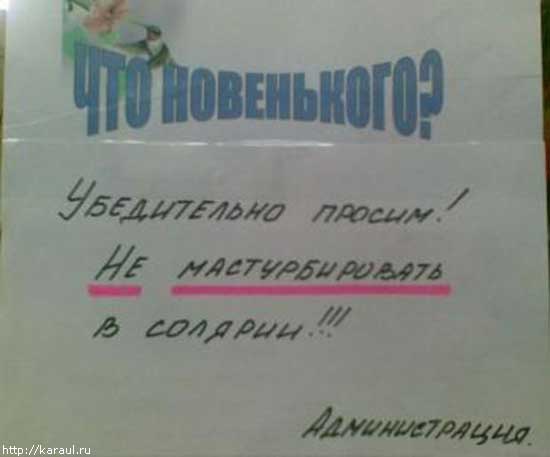 ЧТО НОВЕНЬКОГО?
УБЕДИТЕЛЬНО ПРОСИМ!
НЕ МАСТУРБИРОВАТЬ
В СОЛЯРИИ!!!
АДМИНИСТРАЦИЯ.
http://karaul.ru